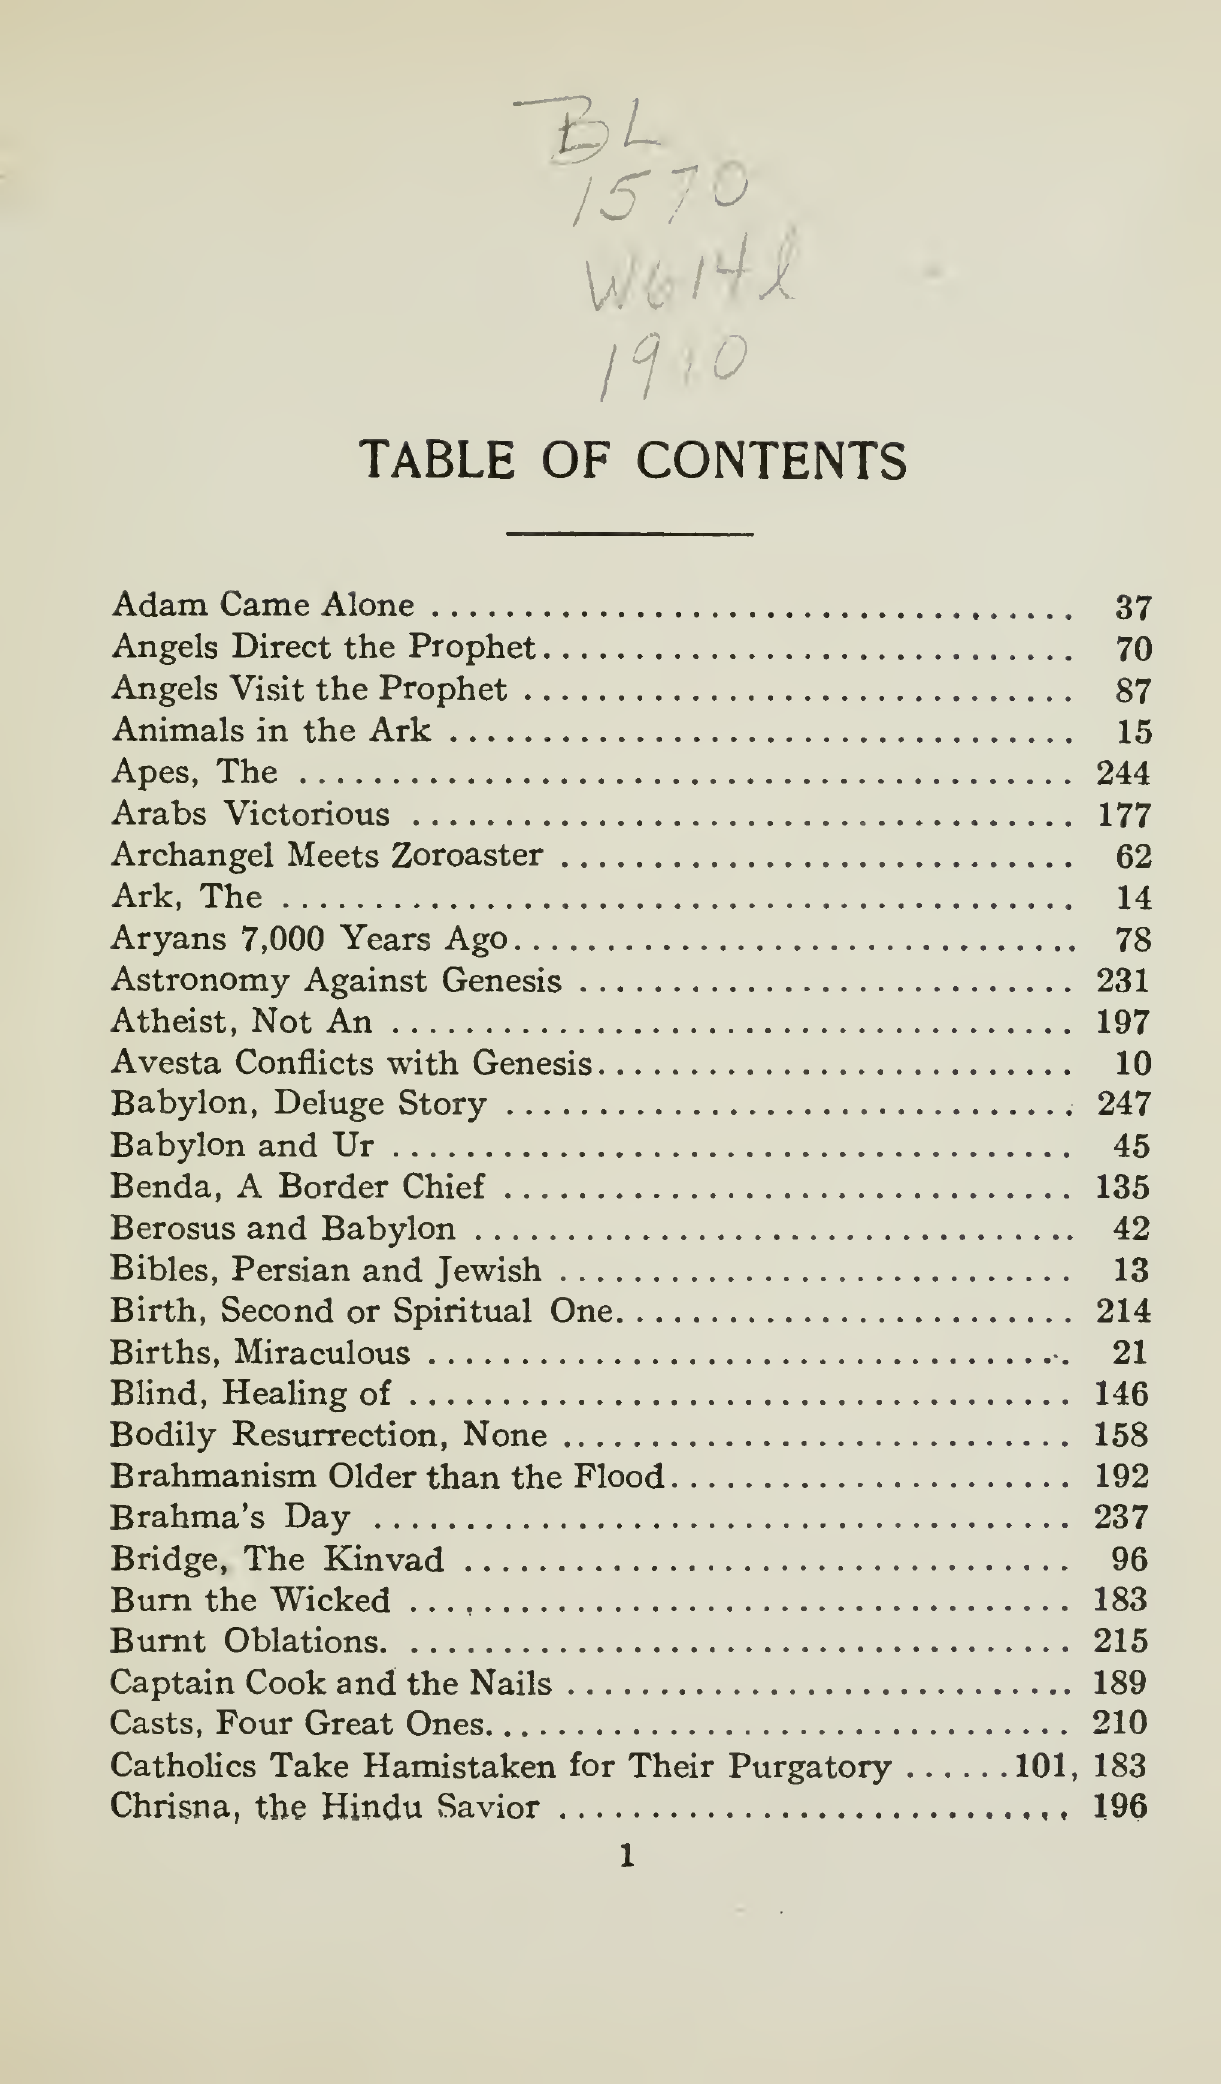 BL
1570
W614l
1910
TABLE OF CONTENTS
Adam Came Alone .................................. 37
Angels Direct the Prophet............................. 70
Angels Visit the Prophet .............................. 87
Animals in the Ark .................................. 15
Apes, The .......................................... 244
Arabs Victorious .................................... 177
Archangel Meets Zoroaster ............................ 62
Ark, The ........................................... 14
Aryans 7,000 Years Ago............................... 78
Astronomy Against Genesis ........................... 231
Atheist, Not An ..................................... 197
Avesta Conflicts with Genesis.......................... 10
Babylon, Deluge Story ............................... 247
Babylon and Ur ..................................... 45
Benda, A Border Chief ............................... 135
Berosus and Babylon ................................. 42
Bibles, Persian and Jewish ............................ 13
Birth, Second or Spiritual One......................... 214
Births, Miraculous ................................... 21
Blind, Healing of .................................... 146
Bodily Resurrection, None ............................ 158
Brahmanism Older than the Flood...................... 192
Brahma's Day ...................................... 237
Bridge, The Kinvad ................................. 96
Burn the Wicked .................................... 183
Burnt Oblations. .................................... 215
Captain Cook and the Nails ........................... 189
Casts, Four Great Ones................................ 210
Catholics Take Hamistaken for Their Purgatory ......101, 183
Chrisna, the Hindu Savior ............................ 196
1